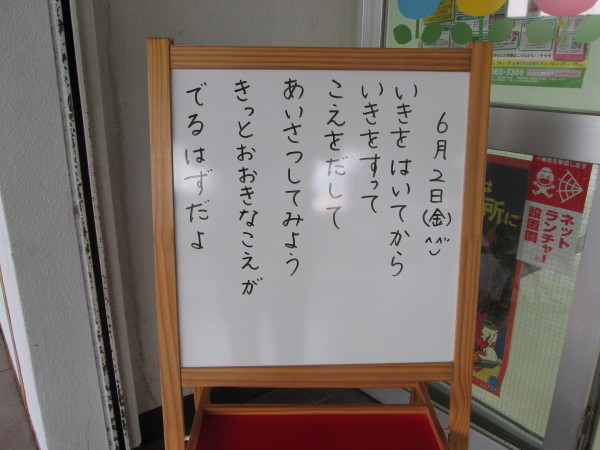 ６月２日(金)^^
いきをはいてから
いきをすって
こえをだして
あいさつしてみよう
きっとおおきなこえが
でるはずだよ
063-3300
は
所に
ネット
ランチャー
設置園